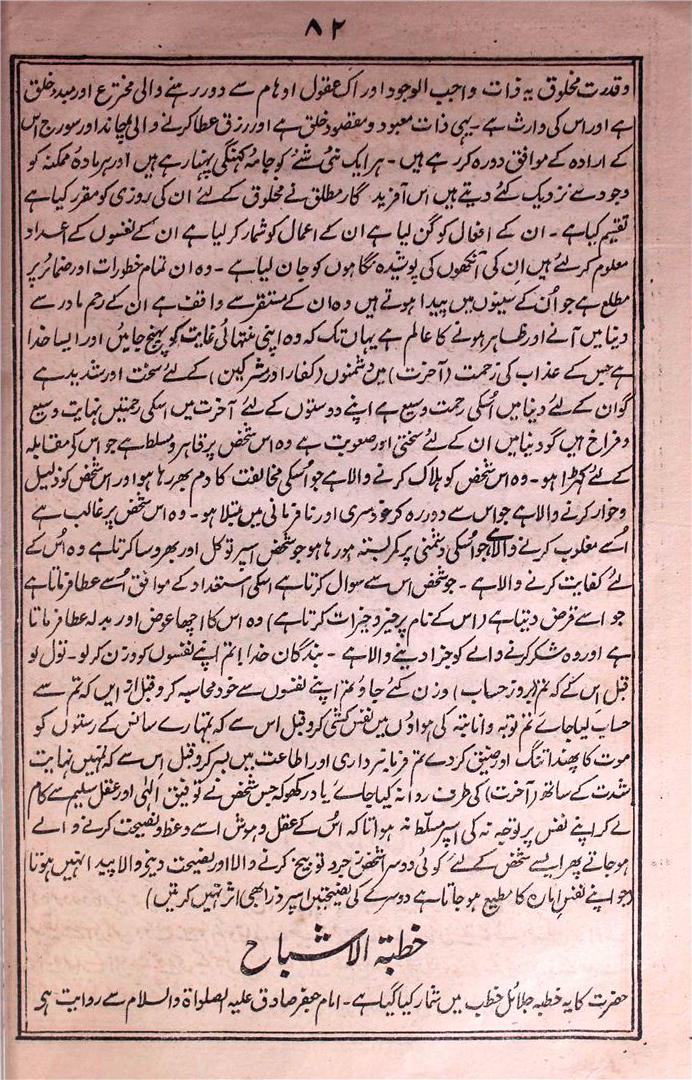 ۸۲
وقدرت مخلوق یہ ذات واجب الوجود اور اک عقول اوہام سے دور رہنے والی مخترع اور مبدء خلق
ہے اور اس کی وارث ہے۔ یہی ذات معبود و مقصود خلق ہے اور رزق عطا کرنے والی چاند اور سورج اس
کے ارادہ کے موافق دورہ کر رہے ہیں۔ ہر ایک نئی شے کو جامہ کہنگی پہنا رہے ہیں اور ہر مادۂ ممکنہ کو
وجود سے نزدیک کئے دیتے ہیں اس آفرید گار مطلق نے مخلوق کے لئے ان کی روزی کو مقرر کیا ہے
تقسیم کیا ہے۔ ان کے افعال کو گن لیا ہے ان کے اعمال کو شمار کر لیا ہے ان کے نفسوں کے اعداد
معلوم کر لئے ہیں ان کی آنکھوں کی پوشیدہ نگاہوں کو جان لیا ہے۔ وہ ان تمام خطورات اور ضمائر پر
مطلع ہے جو اُن کے سینوں میں پیدا ہوتے ہیں وہ ان کے مستقر سے واقف ہے ان کے رحم مادر سے
دنیا میں آنے اور ظاہر ہونے کا عالم ہے یہاں تک کہ وہ اپنی منتہائی غایت کو پہنچ جائیں اور ایسا خدا
ہے جس کے عذاب کی زحمت (آخرت) میں دشمنوں (کفار اور مشرکین) کے لئے سخت اور شدید ہے
گو ان کے لئے دنیا میں اُسکی رحمت وسیع ہے اپنے دوستوں کے لئے آخرت میں اسکی رحمتیں نہایت وسیع
و فراخ ہیں گو دنیا میں ان کے لئے سختی اور صعوبت ہے وہ اس شخص پر قاہر و مسلط ہے جو اس کے مقابلہ
کے لئے کھڑا ہو۔ وہ اس شخص کو ہلاک کرنے والا ہے جو اُسکی مخالفت کا دم بھر رہا ہو اور اس شخص کو ذلیل
وخوار کرنے والا ہے جو اس سے دور رہ کر خودسری اور نافرمانی میں مبتلا ہو۔ وہ اس شخص پر غالب ہے
اُسے مغلوب کرنے والا ہے جو اُسکی دشمنی پر کمر بستہ ہو رہا ہو جو شخص اسپر توکل اور بھروسا کرتا ہے وہ اُس کے
لئے کفایت کرنے والا ہے۔ جو شخص اس سے سوال کرتا ہے اسکی استعداد کے موافق اُسے عطا فرماتا ہے
جو اسے قرض دیتا ہے (اس کے نام پر خیر و خیرات کرتا ہے) وہ اس کا اچھا عوض اور بدلہ عطا فرماتا
ہے اور وہ شکر کرنے والے کو جزا دینے والا ہے۔ بندگان خدا! تم اپنے نفسوں کو وزن کر لو۔ تول لو
قبل اس کے کہ تم (بروز حساب) وزن کئے جاؤ تم اپنے نفسوں سے خود محاسبہ کرو قبل از ایں کہ تم سے
حساب لیا جاے تم توبہ وانابتہ کی ہواؤں میں نفس کشی کرو قبل اس سے کہ تمہارے سانس کے رستوں کو
موت کا پھندا تنگ اور ضیق کر دے تم فرمانبرداری اور اطاعت میں بسر کرو قبل اس سے کہ تمہیں نہایت
شدت کے ساتھ (آخرت) کی طرف روانہ کیا جاے یاد رکھو کہ جس شخص نے توفیق الٰہی اور عقل سلیم سے کام
لے کر اپنے نفس پر توجہ نہ کی اسپر مسلط نہ ہوا تاکہ اس کے عقل و ہوش اسے وعظ و نصیحت کرنے والے
ہو جاتے پھر ایسے شخص کے لئے کوئی دوسرا شخص زجر و توبیخ کرنے والا اور نصیحت دینے والا پیدا نہیں ہوتا
(جو اپنے نفس امارہ کا مطیع ہو جاتا ہے دوسرے کی نصیحتیں اسپر ذرا بھی اثر نہیں کرتیں)
خطبۃ الاشباح
حضرت کا یہ خطبہ جلائل خطب میں شمار کیا گیا ہے۔ امام جعفر صادق علیہ الصلواۃ والسلام سے روایت ہی